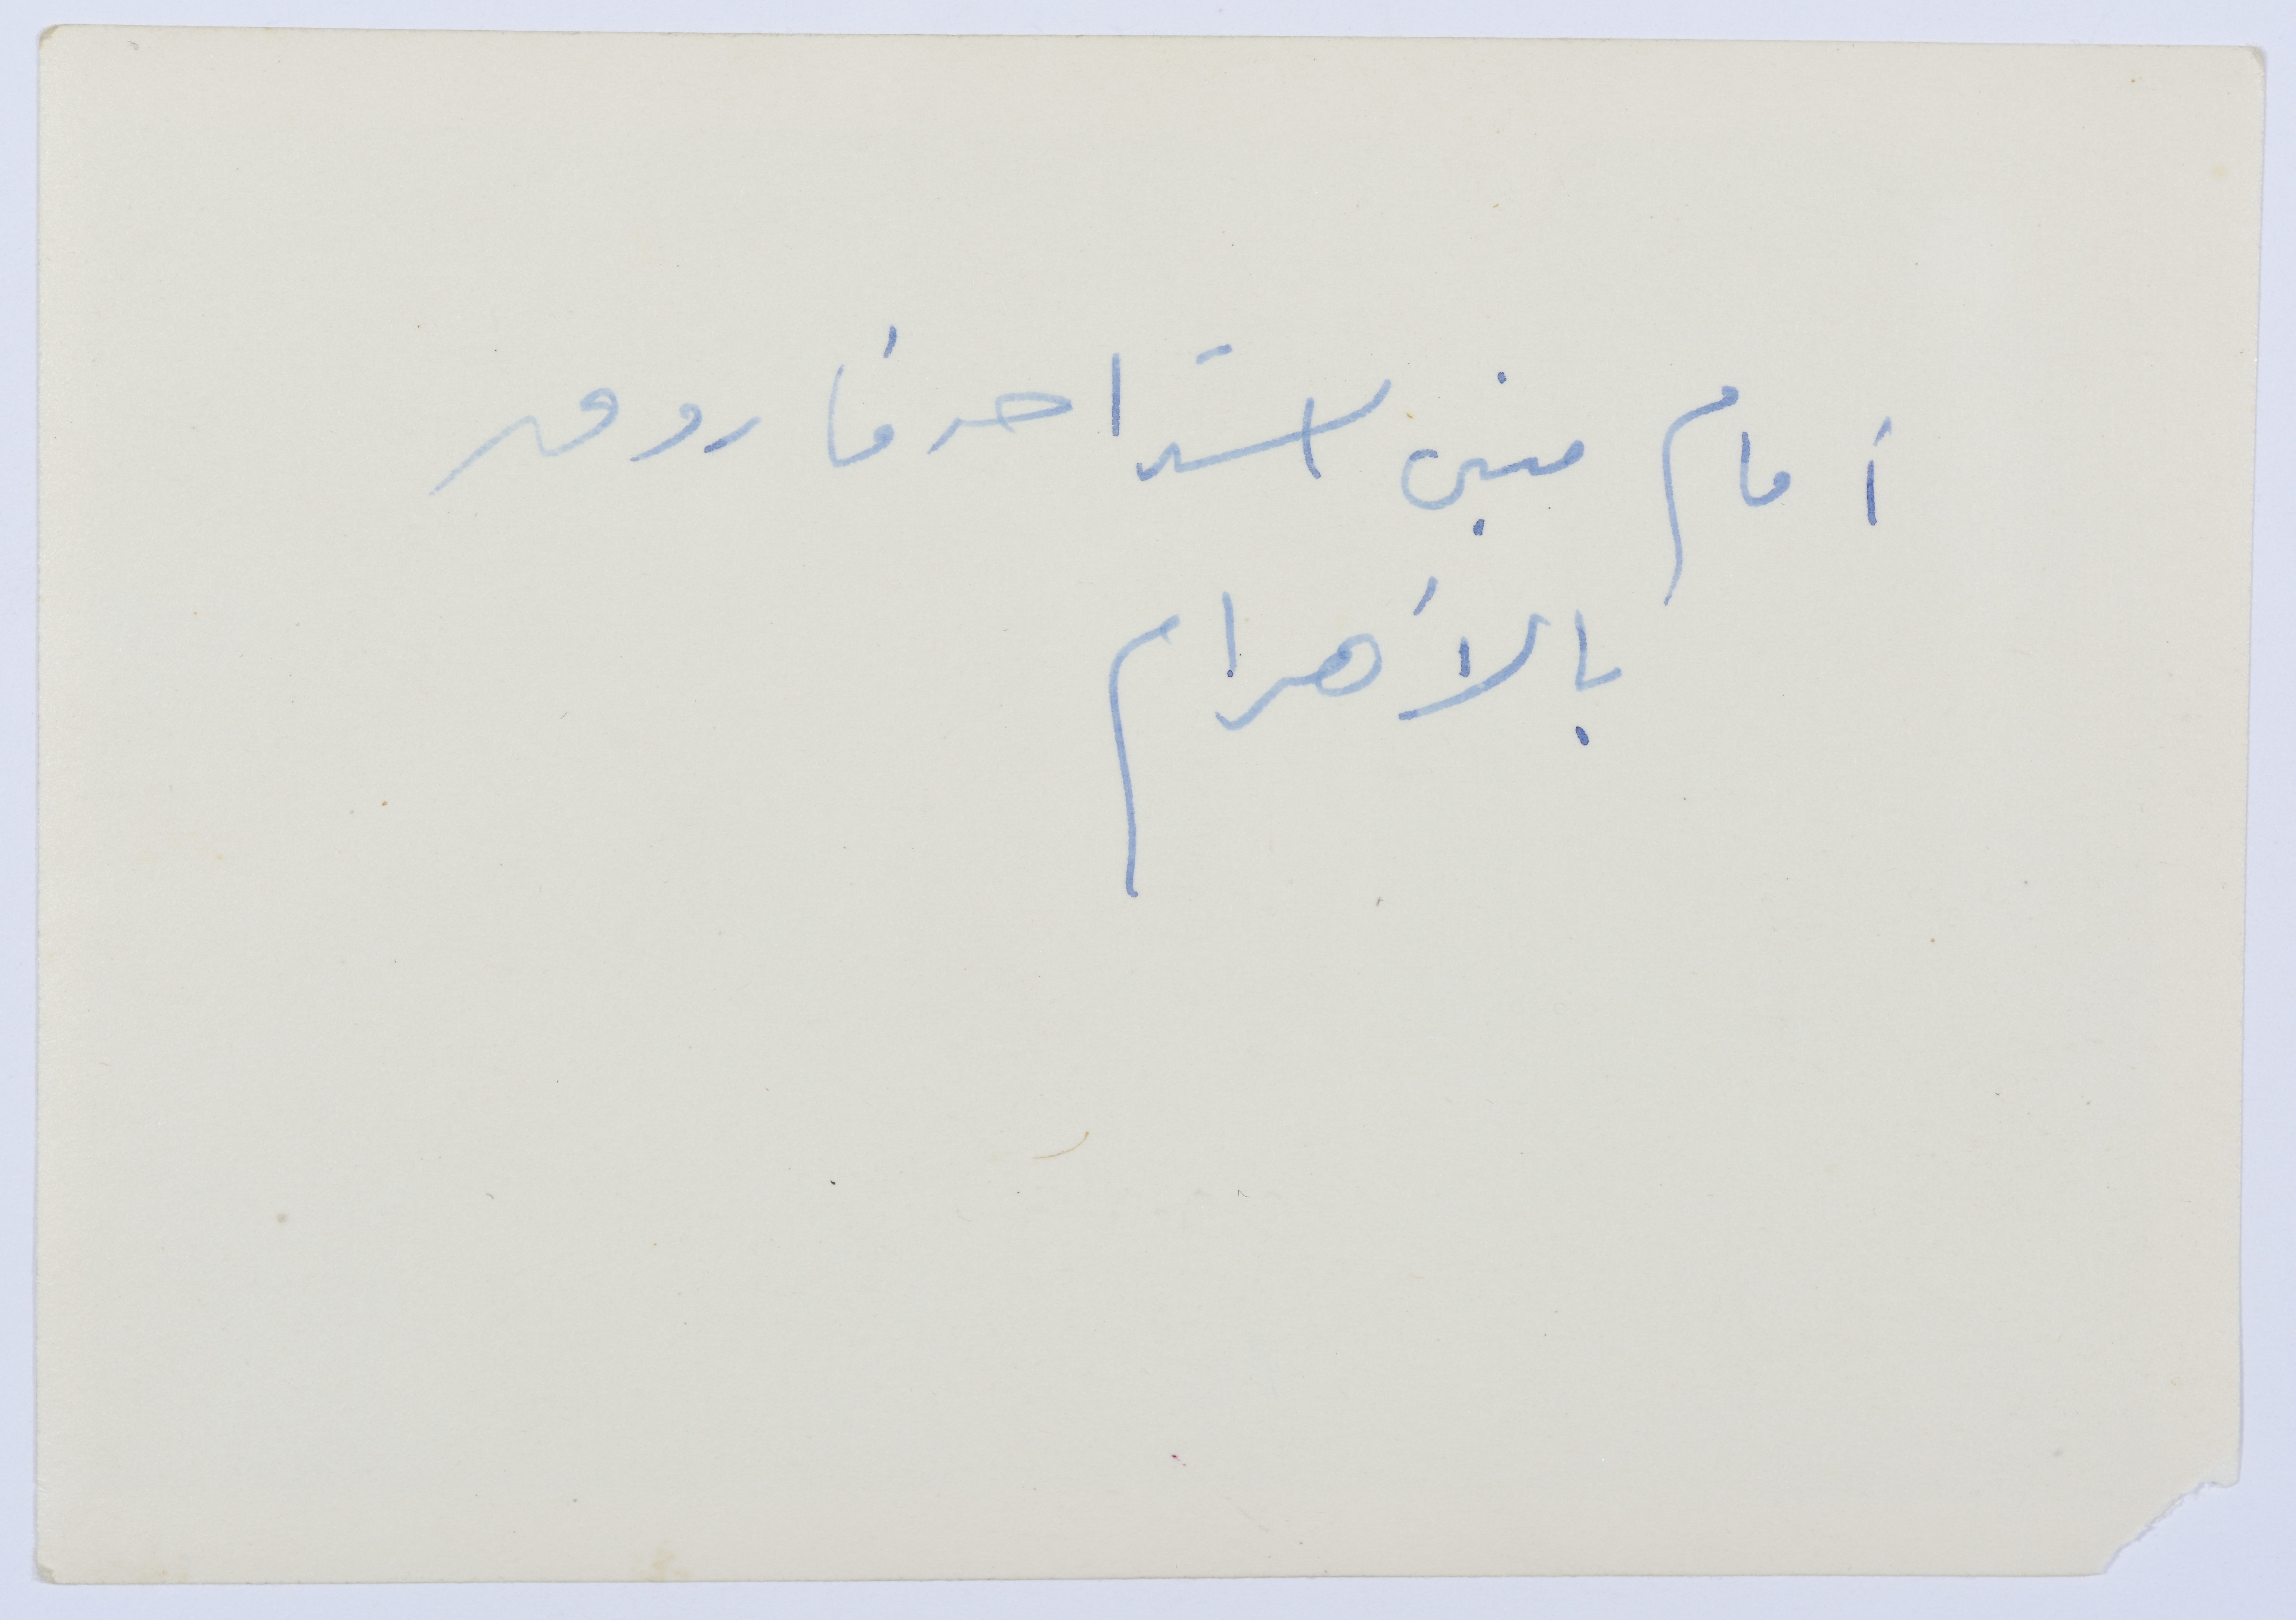 أمام مبنى استراحة فاروق
بالأهرام